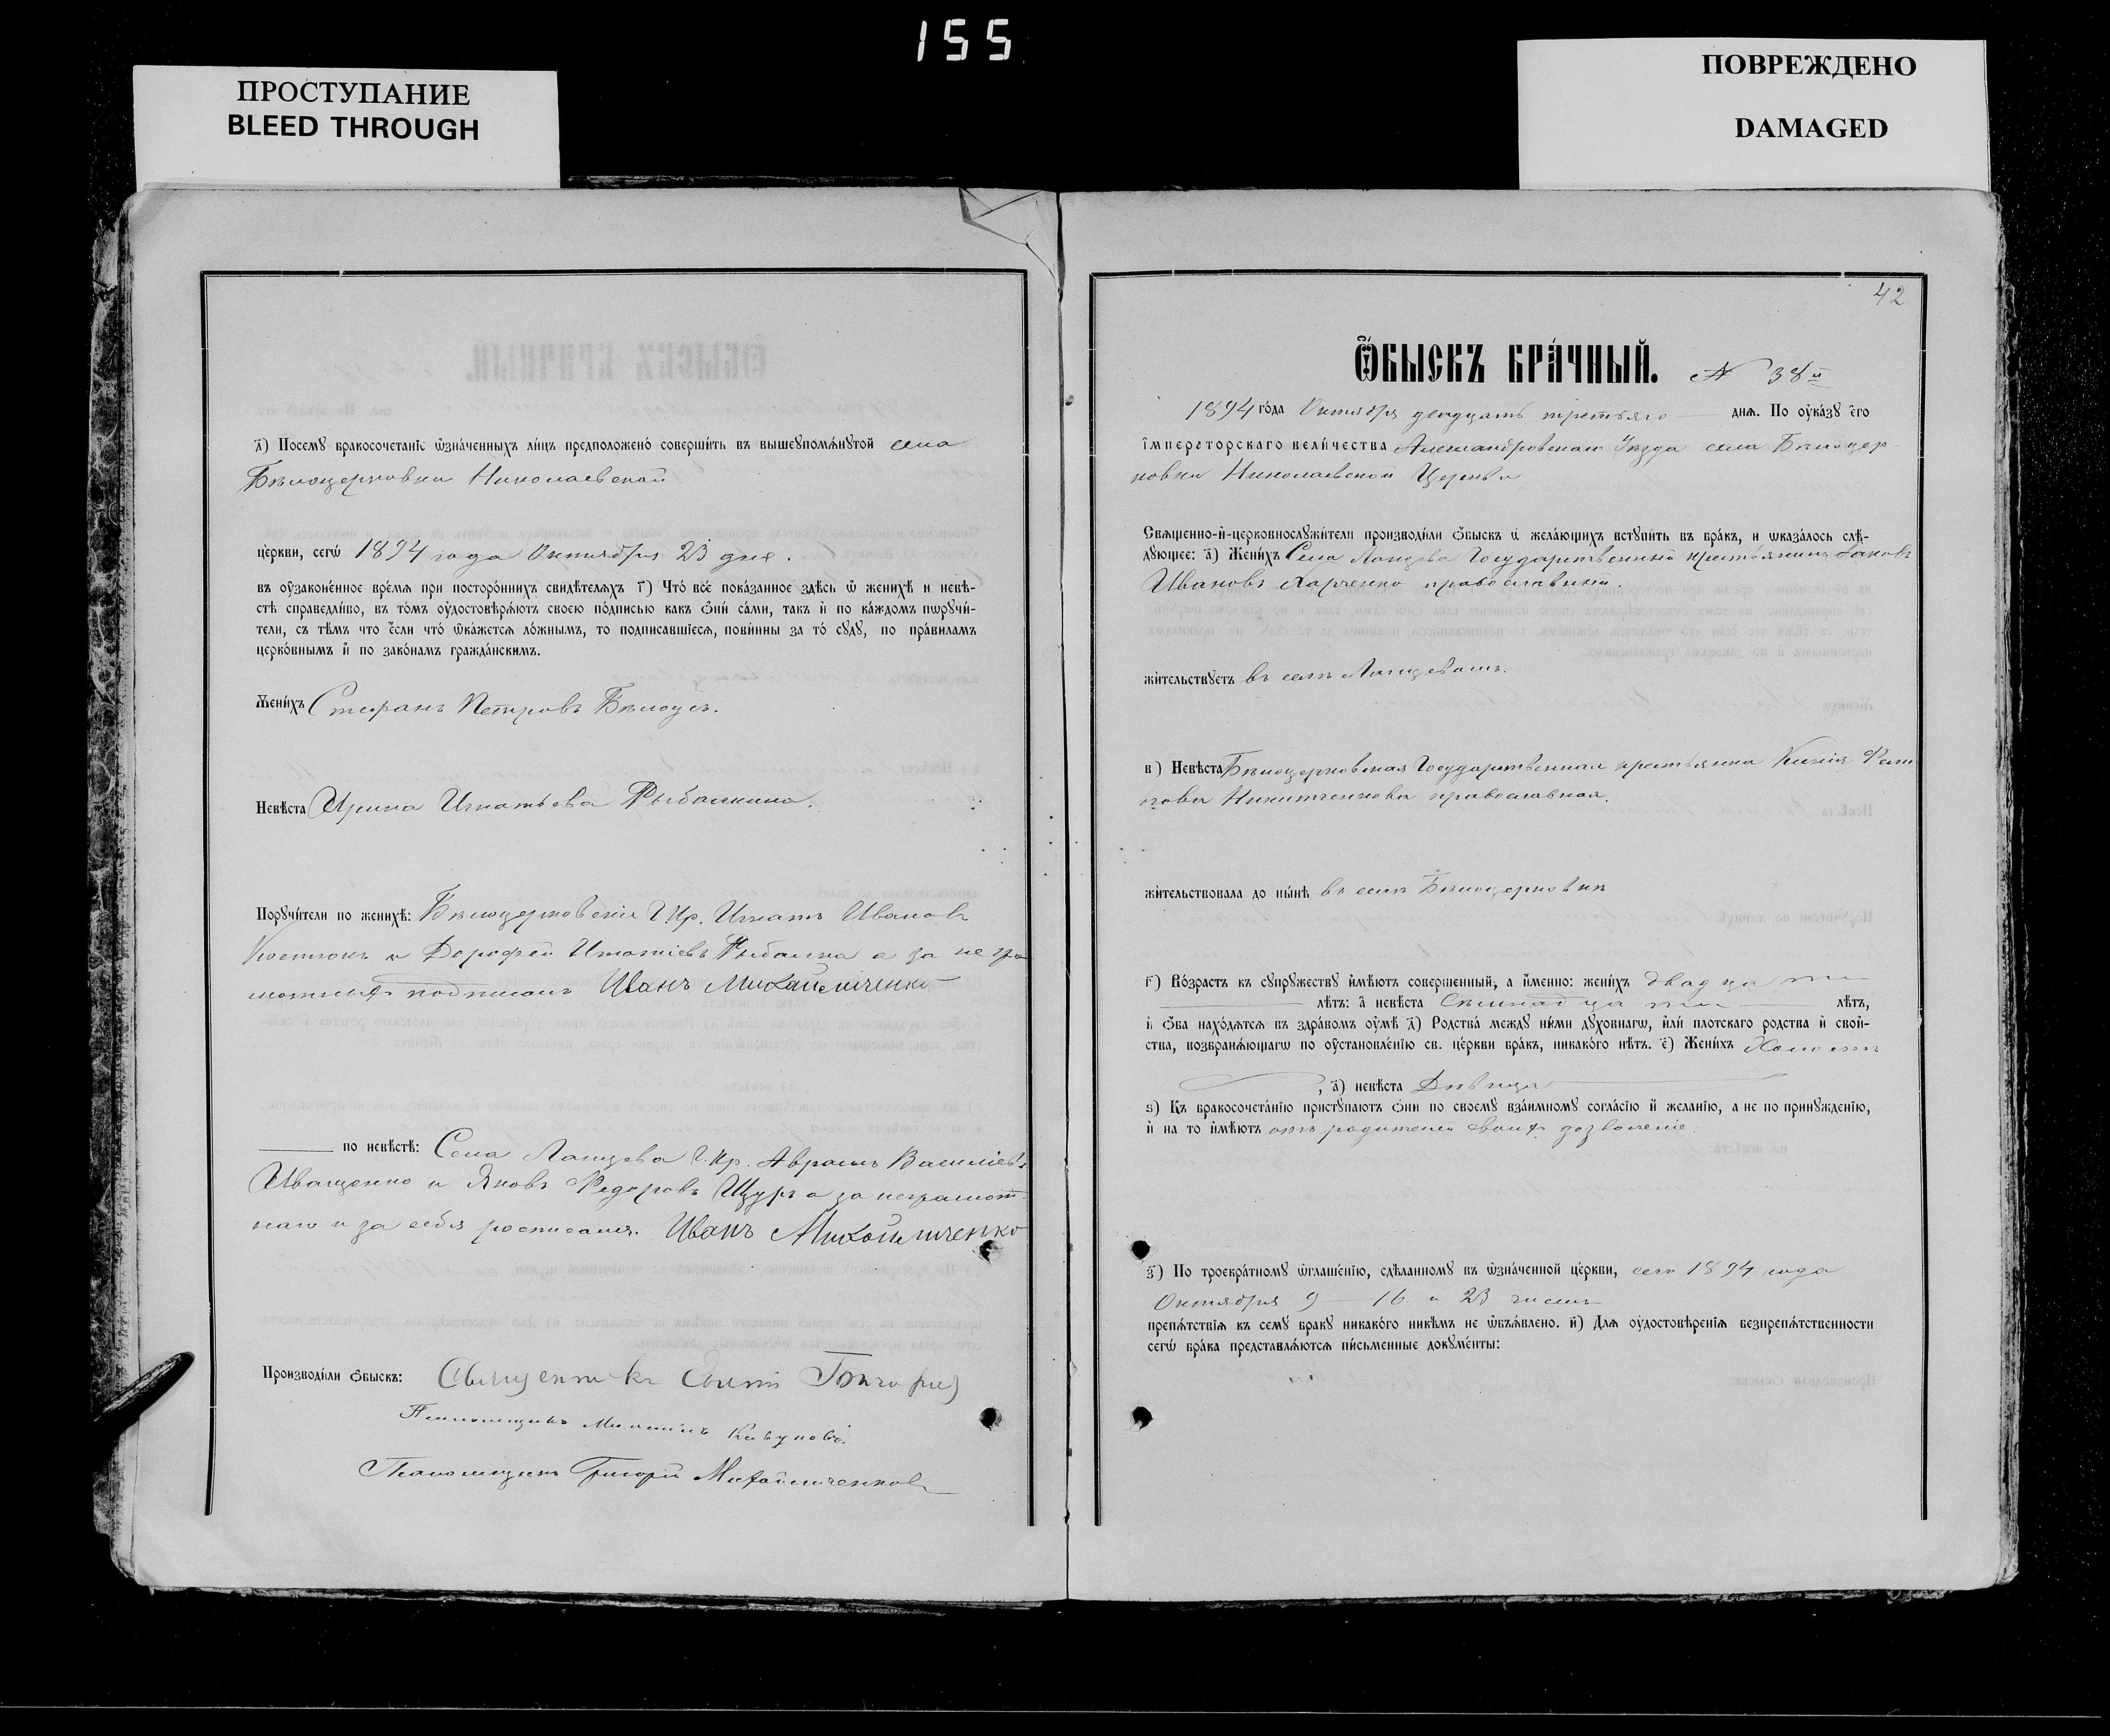 155
ПРОСТУПАНИЕ
BLEED THROUGH
ПОВРЕЖДЕНО
DAMAGED
д҃) Посемꙋ бракосочетанїе ѡзна́ченныхъ ли́цъ предположено́ соверши́ть въ вышеꙋпомѧ́нꙋтой села
Бѣлоцерковки Николаевской
це́ркви, сегѡ̀ 1894 года Октября 23 дня.
въ оу҆зако́ненное вре́мѧ при посторо́ннихъ свидѣ́телѧхъ г҃) Что́ всѐ пока́занное здѣ́сь ѡ҆ женихѣ̀ и невѣ́-
стѣ справедли́во, въ то́мъ оу҆достовѣрѧ́ютъ своею по́дписью какъ ѻ҆нѝ са́ми, та́къ и҆ по ка́ждомъ пѡрꙋчи́-
тели, съ тѣ́мъ что є҆́сли что́ ѡ҆ка́жетсѧ ло́жнымъ, то подписавшїесѧ, пови́нны за то́ сꙋдꙋ̀, по пра́виламъ
церко́внымъ и҆ по зако́намъ гражда́нскимъ.
Жени́хъ Стефанъ Петровъ Бѣлоусъ.
Невѣ́ста Ирина Игнатьева Рыбалкина.
Порꙋчи́тели по женихѣ̀: Бѣлоцерковскіе Г. Кр. Игнатъ Ивановъ
Костюкъ и Дорофей Игнатіевъ Рыбалка а за негра
мотныхъ подписалъ Иванъ Михайличенко
по невѣ́стѣ: Села Ланцева Г. Кр. Аврамъ Василіевъ
Иващенко и Яковъ Федоровъ Щуръ а за неграмот-
наго и за себя росписался. Иванъ Михайличенко
Производи́ли ѻ҆́быскъ: Священникъ
Псаломщикъ
Псаломщикъ Григорій Михайличенковъ
42
Ѻ҆́БЫСКЪ БРА́ЧНЫЙ. № 38й
1894 го́да Октября двадцать третьяго днѧ. По оу҆ка́зꙋ є҆гѡ̀
і҆мпера́торскаго вели́чества Александровскаго Уѣзда села Бѣлоцер
ковки Николаевской Церкви
Свѧще́нно-и҆-церковнослꙋжи́тели производи́ли ѻ҆́быскъ ѡ҆ жела́ющихъ встꙋпи́ть въ бра́къ, и ѡказа́лось слѣ́-
дꙋющее: а҃) Жени́хъ Села Ланцева Государственный крестьянинъ Яковъ
Ивановъ Харченко православный.
жи́тельствꙋетъ въ селѣ Ланцевомъ.
в҃) Невѣ́ста Бѣлоцерковская Государственная крестьянка Ксенія
Никитченкова православная.
жи́тельствовала до ны́нѣ въ селѣ Бѣлоцерковкѣ
г҃) Во́зрастъ къ сꙋпрꙋ́жествꙋ и҆мѣ́ютъ соверше́нный, а и҆́менно: жени́хъ двадцати
лѣ́тъ: а҆ невѣ́ста Семнадцати лѣ́тъ,
и҆ ѻ҆́ба нахо́дѧтсѧ въ здра́вомъ оу҆мѣ̀ д҃) Родства̀ междꙋ ни́ми дꙋхо́внагѡ, и҆лѝ пло́тскаго родства̀ и҆ сво́й-
ства, возбранѧ́ющагѡ по оу҆становле́нїю св. це́ркви бра́къ, никако́го нѣ́тъ. є҃) Жени́хъ Холостъ
, а҃) невѣ́ста Дѣвица
ѕ҃) Къ бракосочета́нїю пристꙋпа́ютъ ѻ҆нѝ по своемꙋ̀ взаи́мномꙋ согла́сїю и҆ жела́нїю, а не по принꙋжде́нїю,
и҆ на то и҆мѣ́ютъ отъ родителей своихъ дозволеніе.
з҃) По троекра́тномꙋ ѡ҆глаше́нїю, сдѣ́ланномꙋ въ ѡ҆зна́ченной це́ркви, сего 1894 года
Октября 9 – 16 и 23 числъ
препѧ́тствїѧ къ семꙋ̀ бра́кꙋ никако́го никѣ́мъ не ѡ҆б̾ѧ́влено. и҃) Длѧ оу҆достовѣ́ренїѧ безпрепѧ́тственности
сегѡ̀ бра́ка представлѧ́ютсѧ пи́сьменные докꙋме́нты: